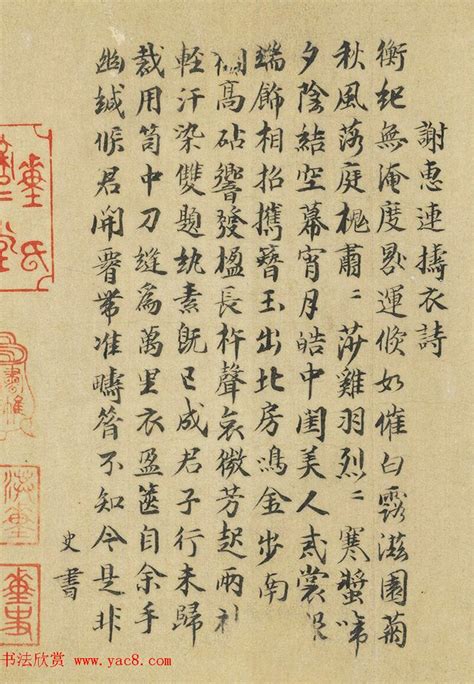 謝惠連擣衣詩
衡紀無淹度晷運倏如催白露滋園菊
秋風落庭槐肅〻莎雞羽烈〻寒螿啼
夕陰結空幕宵月皓中閨美人戒裳
端飾相招攜簪玉出北房鳴金步南
高砧響發楹長杵聲哀微芳起兩
輕汗染雙題紈素既已成君子行未歸
裁用笥中刀縫為萬里衣盈篋自余手
幽緘候君開帶准疇昔不知今是非
史書
书法欣赏 www.yac8.com